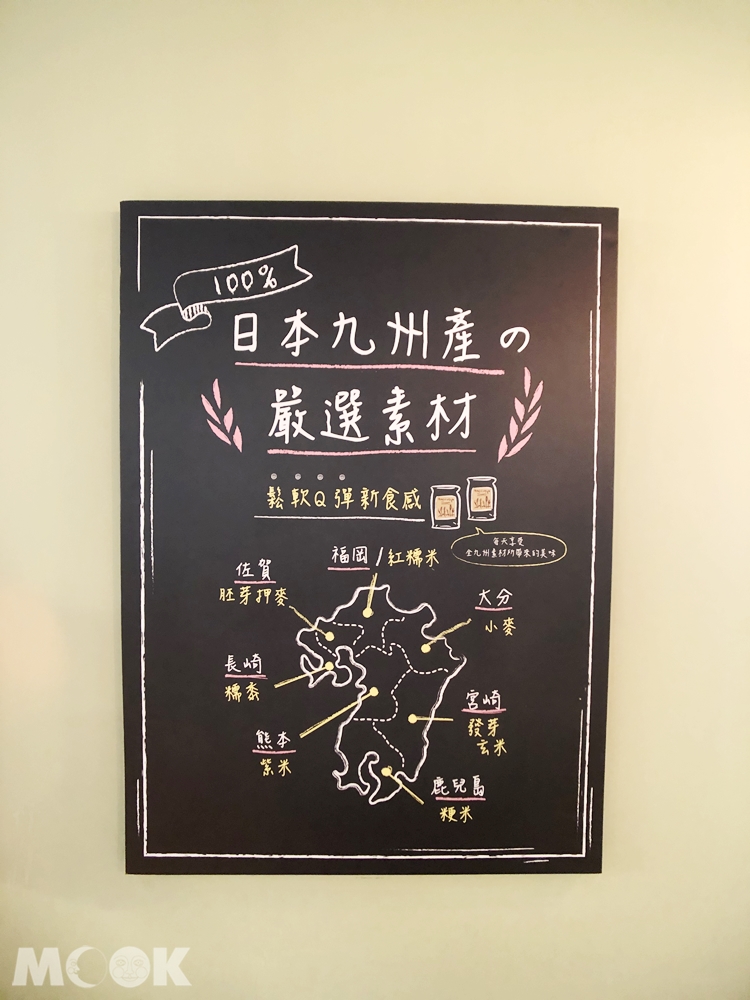 100%
日本九州產の
嚴選素材
鬆軟Q彈新食感
每天享受
全九州素材所帶來的美味
福岡/紅糯米
佐賀
胚芽押麥
大分
小麥
長崎
糯黍
宮崎
發芽
玄米
熊本
紫米
鹿兒島
粳米
MOOK